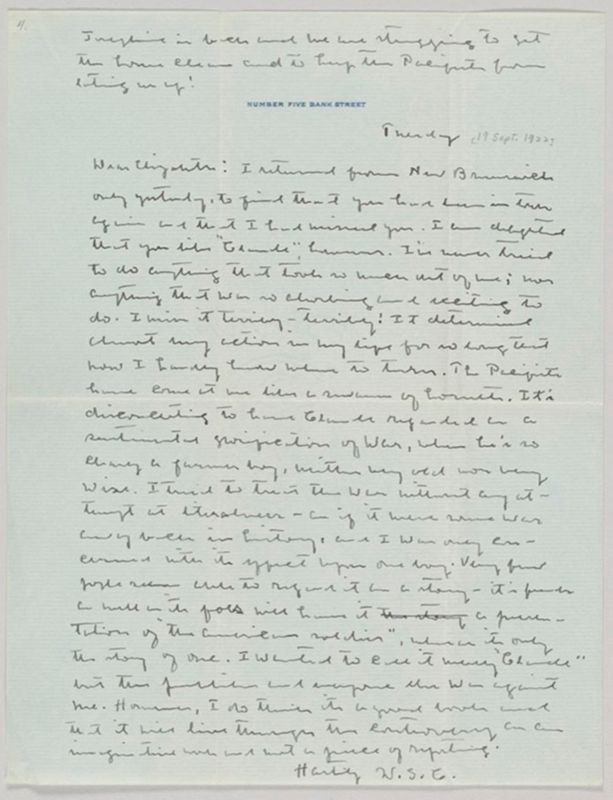 4.
Josephine is back and we are struggling to get
the house clean and to keep the Pacifists from
eating us up!
NUMBER FIVE BANK STREET
Tuesday [19 Sept. 1922]
Dear Elizabeth: I returned from New Brunswick
only yesterday, to find that you had been in town
again and that I had missed you. I am delighted
that you like "Claude", however. I've never tried
to do anything that took so much out of me; nor
anything that was so absorbing and exciting to
do. I miss it terribly - terribly! It determined
almost every action in my life for so long that
now I hardly know where to turn. The Pacifists
have come at me like a swarm of hornets. It's
disconcerting to have Claude regarded as a
sentimental glorification of War, when he's so
clearly a farmer boy, neither very old nor very
wise. I tried to treat the War without any at-
tempt at literalness - as if it were some War
away back in history, and I was only con-
cerned with its effect upon one boy. Very few
people seem able to regard it as a story - it's friends
as well as its foes will have it the story a presen-
tation of "the American soldier", when its only
the story of one. I wanted to call it merely "Claude"
but the publisher and everyone else was against
me. However, I do think it's a good book and
that it will live through the controversy as an
imaginative work and not a piece of reporting.
Hastily W.S.C.